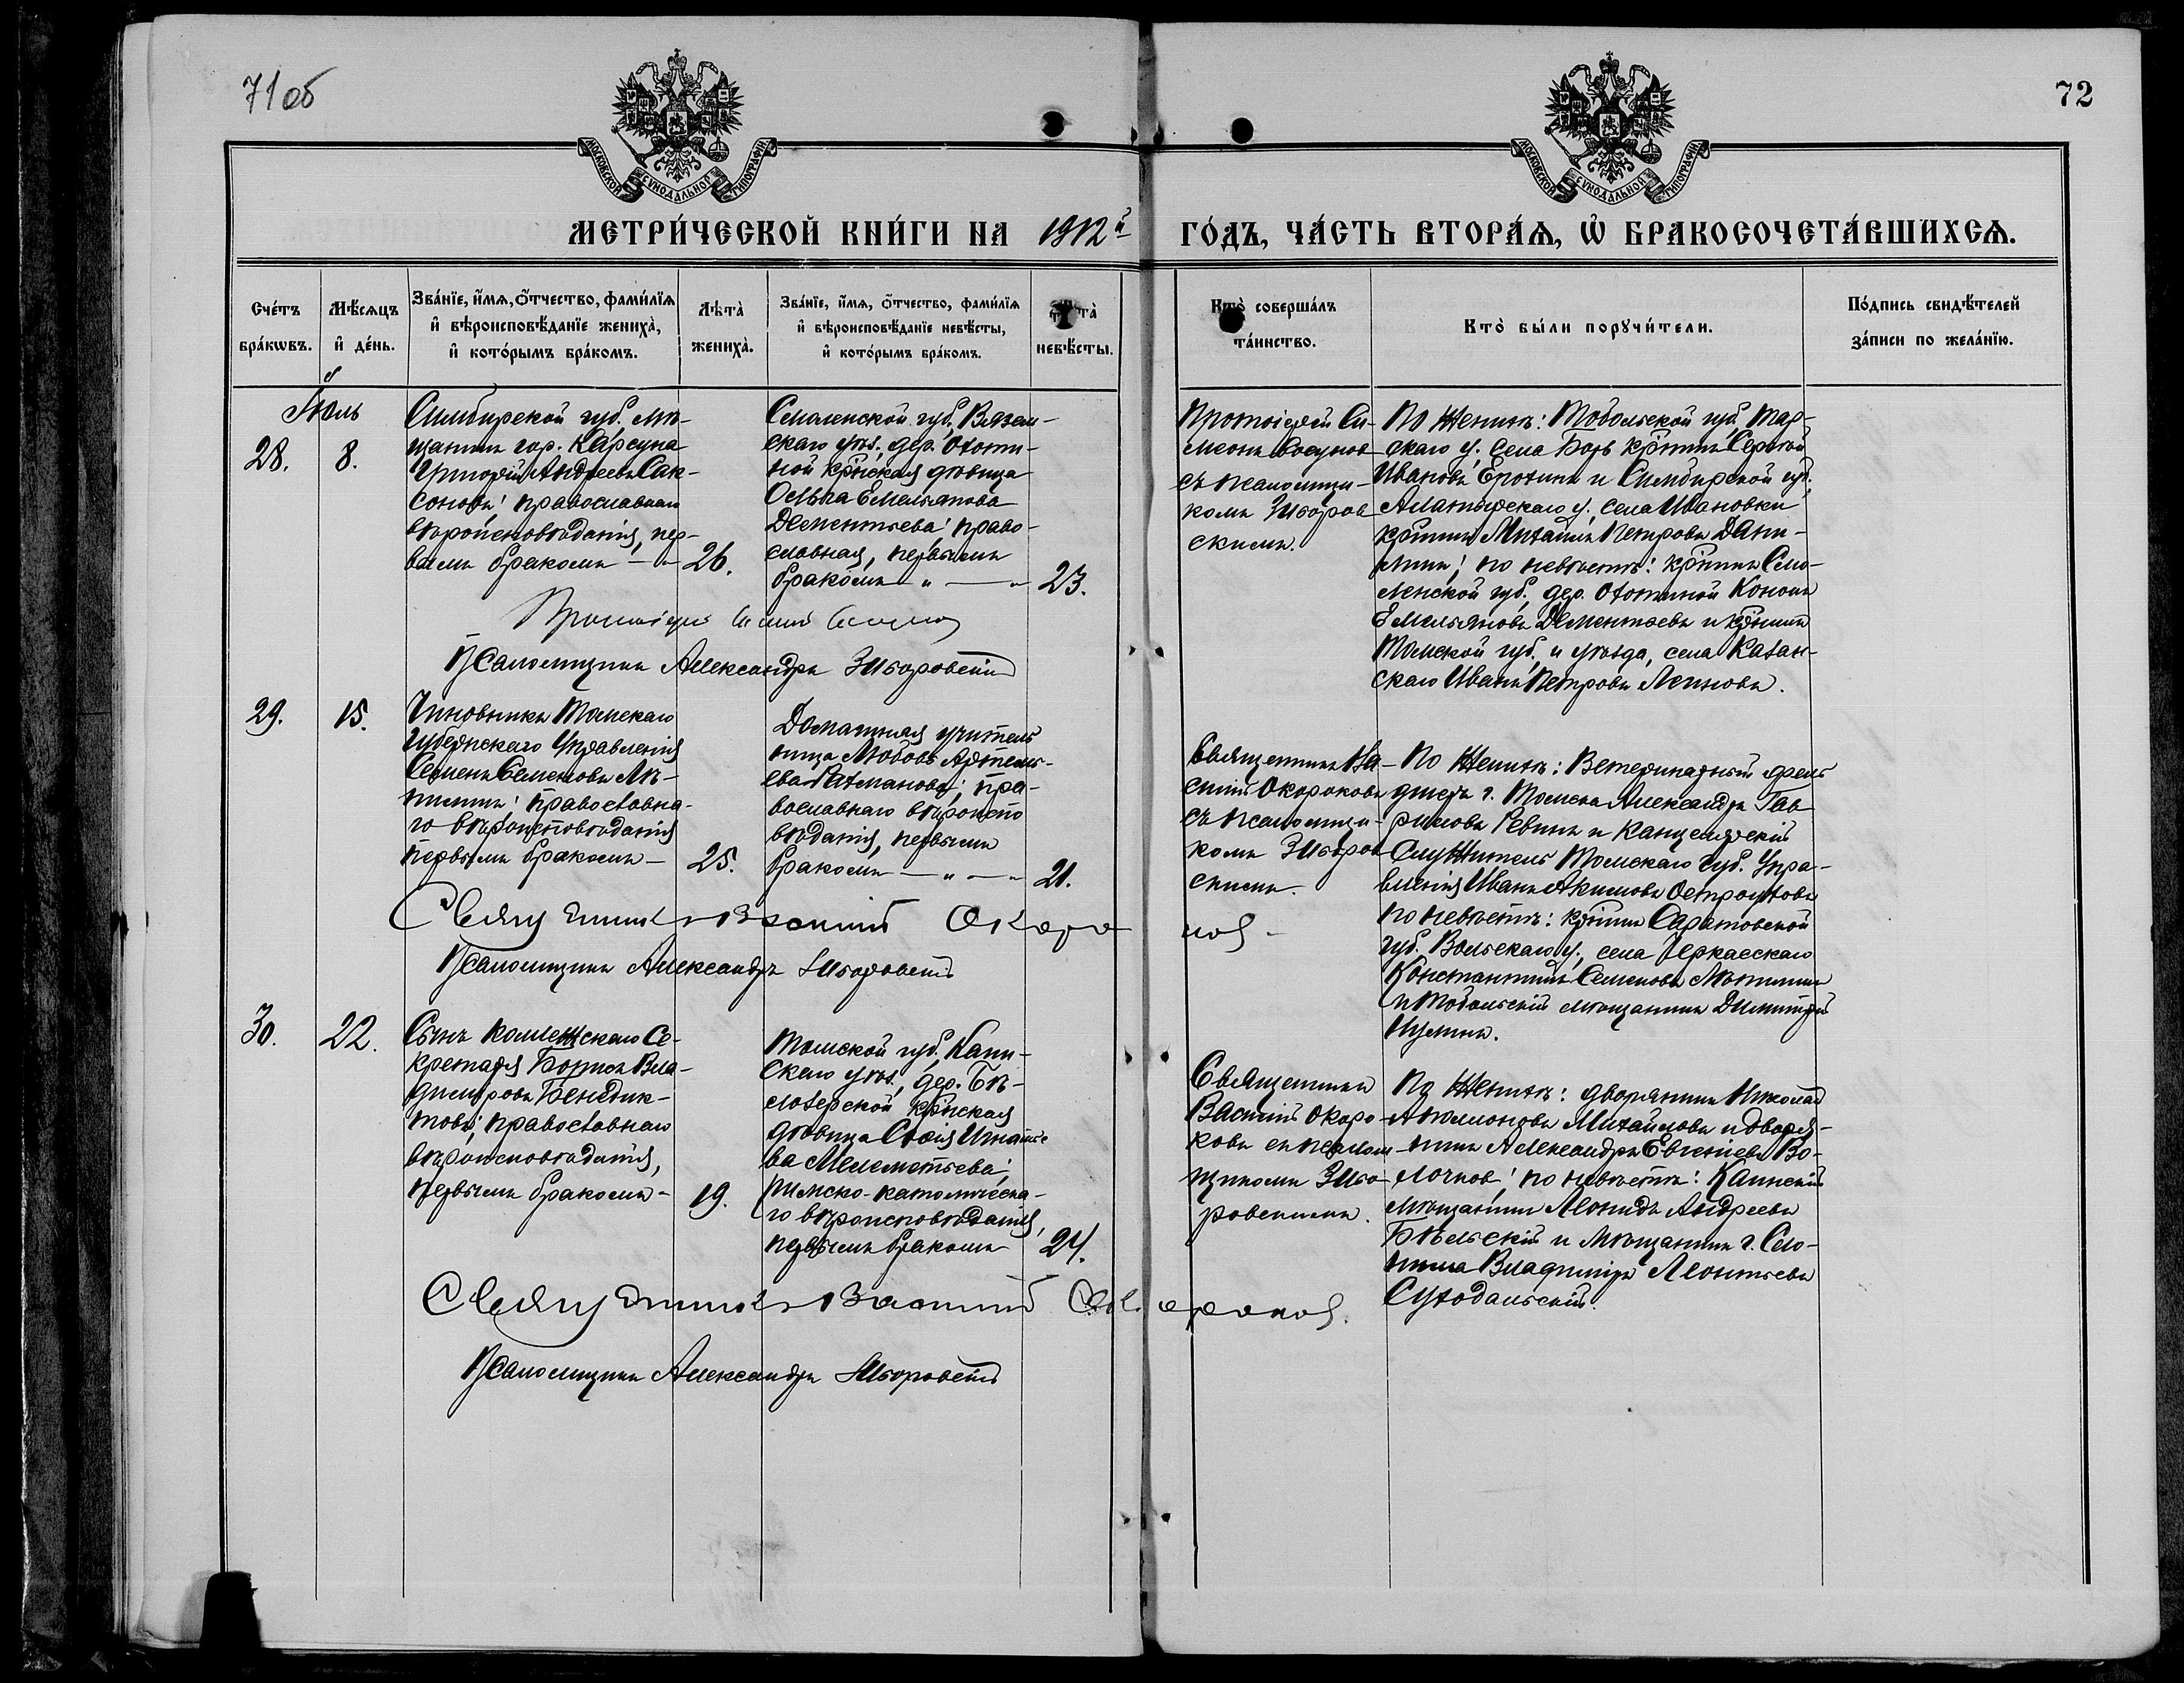 71 об
72
МОСКОВСКОЙ СѴНОДАЛЬНОЙ ТИПОГРАФІИ
МОСКОВСКОЙ СѴНОДАЛЬНОЙ ТИПОГРАФІИ
МЕТРИ́ЧЕСКОЙ КНИ́ГИ НА 1912й ГО́ДЪ, ЧА́СТЬ ВТОРА́Ѧ, Ѡ҆ БРАКОСОЧЕТА́ВШИХСѦ.
Сче́тъ бра́кѡвъ.
Мѣ́сѧцъ и҆ де́нь.
Зва́нїе, и҆́мѧ, ѻ҆́тчество, фами́лїѧ
и҆ вѣроисповѣ́данїе жениха̀,
и҆ кото́рымъ бра́комъ.
Лѣта̀ жениха̀.
Зва́нїе, и҆́мѧ, ѻ҆́тчество, фами́лїѧ
и҆ вѣроисповѣ́данїе невѣ́сты,
и҆ кото́рымъ бра́комъ.
невѣ́сты.
Кто̀ соверша́лъ
та́инство.
Кто̀ бы́ли порꙋчи́тели.
По́дпись свидѣ́телей
за́писи по жела́нїю.
Іюль
28.
8.
Симбирской губ. мѣ-
щанинъ гор. Карсуна
Григорій Андреевъ Сак-
соновъ; православнаго
вѣроисповѣданія, пер-
вымъ бракомъ — "
26.
Смоленской губ., Вязем-
скаго уѣз., дер. Охоти-
ной кр-нская дѣвица
Ольга Емельянова
Дементьева; право-
славная, первымъ
бракомъ — " — "
23.
Протоіерей Си-
меонъ Сосунов
съ псаломщи-
комъ Згоров
скимъ.
По женихѣ: Тобольской губ., Тар-
скаго у. села Боръ кр-нинъ Сергѣй
Ивановъ Ерохинъ и Симбирской губ.,
Алатырскаго у. села Ивановки
кр-нинъ Михаилъ Петровъ Дани-
линъ; по невѣстѣ: кр-нинъ Смо-
ленской губ., дер. Охотиной Кононъ
Емельяновъ Дементьевъ и кр-нинъ
Томской губ. и уѣзда, села Казан-
скаго Иванъ Петровъ Логиновъ.
Протоіерей Симеонъ Сосуновъ
Псаломщикъ Александръ Згоровскій
29.
15.
Чиновникъ Томскаго
Губернскаго Управленія
Семенъ Семеновъ Мѣ-
тинъ; православна-
го вѣроисповѣданія
первымъ бракомъ —
25.
Домашняя учитель
ница Любовь Артемь-
ева Ратманова; пра-
вославнаго вѣроиспо
вѣданія, первымъ
бракомъ — " — "
21.
Священникъ Ва-
силій Окороковъ
съ псаломщи-
комъ Згоров
скимъ.
По женихѣ: Ветеринарный фель
дшеръ г. Томска Александръ Гав
риловъ Ревинъ и канцелярскій
служитель Томскаго Губ. Упра-
вленія Иванъ Акимовъ Остроуховъ
по невѣстѣ: кр-нинъ Саратовской
губ. Вольскаго у., села Черкасскаго
Константинъ Семеновъ Мѣтинъ
и Тобольскій мѣщанинъ Димитрій
Священникъ Василій Окороковъ
Псаломщикъ Александръ Згоровскій
30.
22.
Сынъ коллежскаго Се-
кретаря Борисъ Вла-
диміровъ Бенедик-
товъ; православнаго
вѣроисповѣданія,
первымъ бракомъ —
19.
Томской губ., Каин-
скаго уѣз., дер. Бѣ-
лозерской кр-нская
дѣвица Софія Игнатье
ва Мелеметьева;
римско-католическа-
го вѣроисповѣданія,
первымъ бракомъ
24.
Священникъ
Василій Окоро-
ковъ съ псалом-
щикомъ Зго-
ровскимъ.
По женихѣ: дворянинъ Николай
Аполлоновъ Михайловъ и дворя-
нинъ Александръ Евгеніевъ Во-
лочков; по невѣстѣ: Каинскій
мѣщанинъ Леонидъ Андреевъ
Бѣльскій и мѣщанинъ г. Сло-
нима Владиміръ Леонтьевъ
Суходольскій.
Священникъ Василій Окороковъ.
Псаломщикъ Александръ Згоровскій